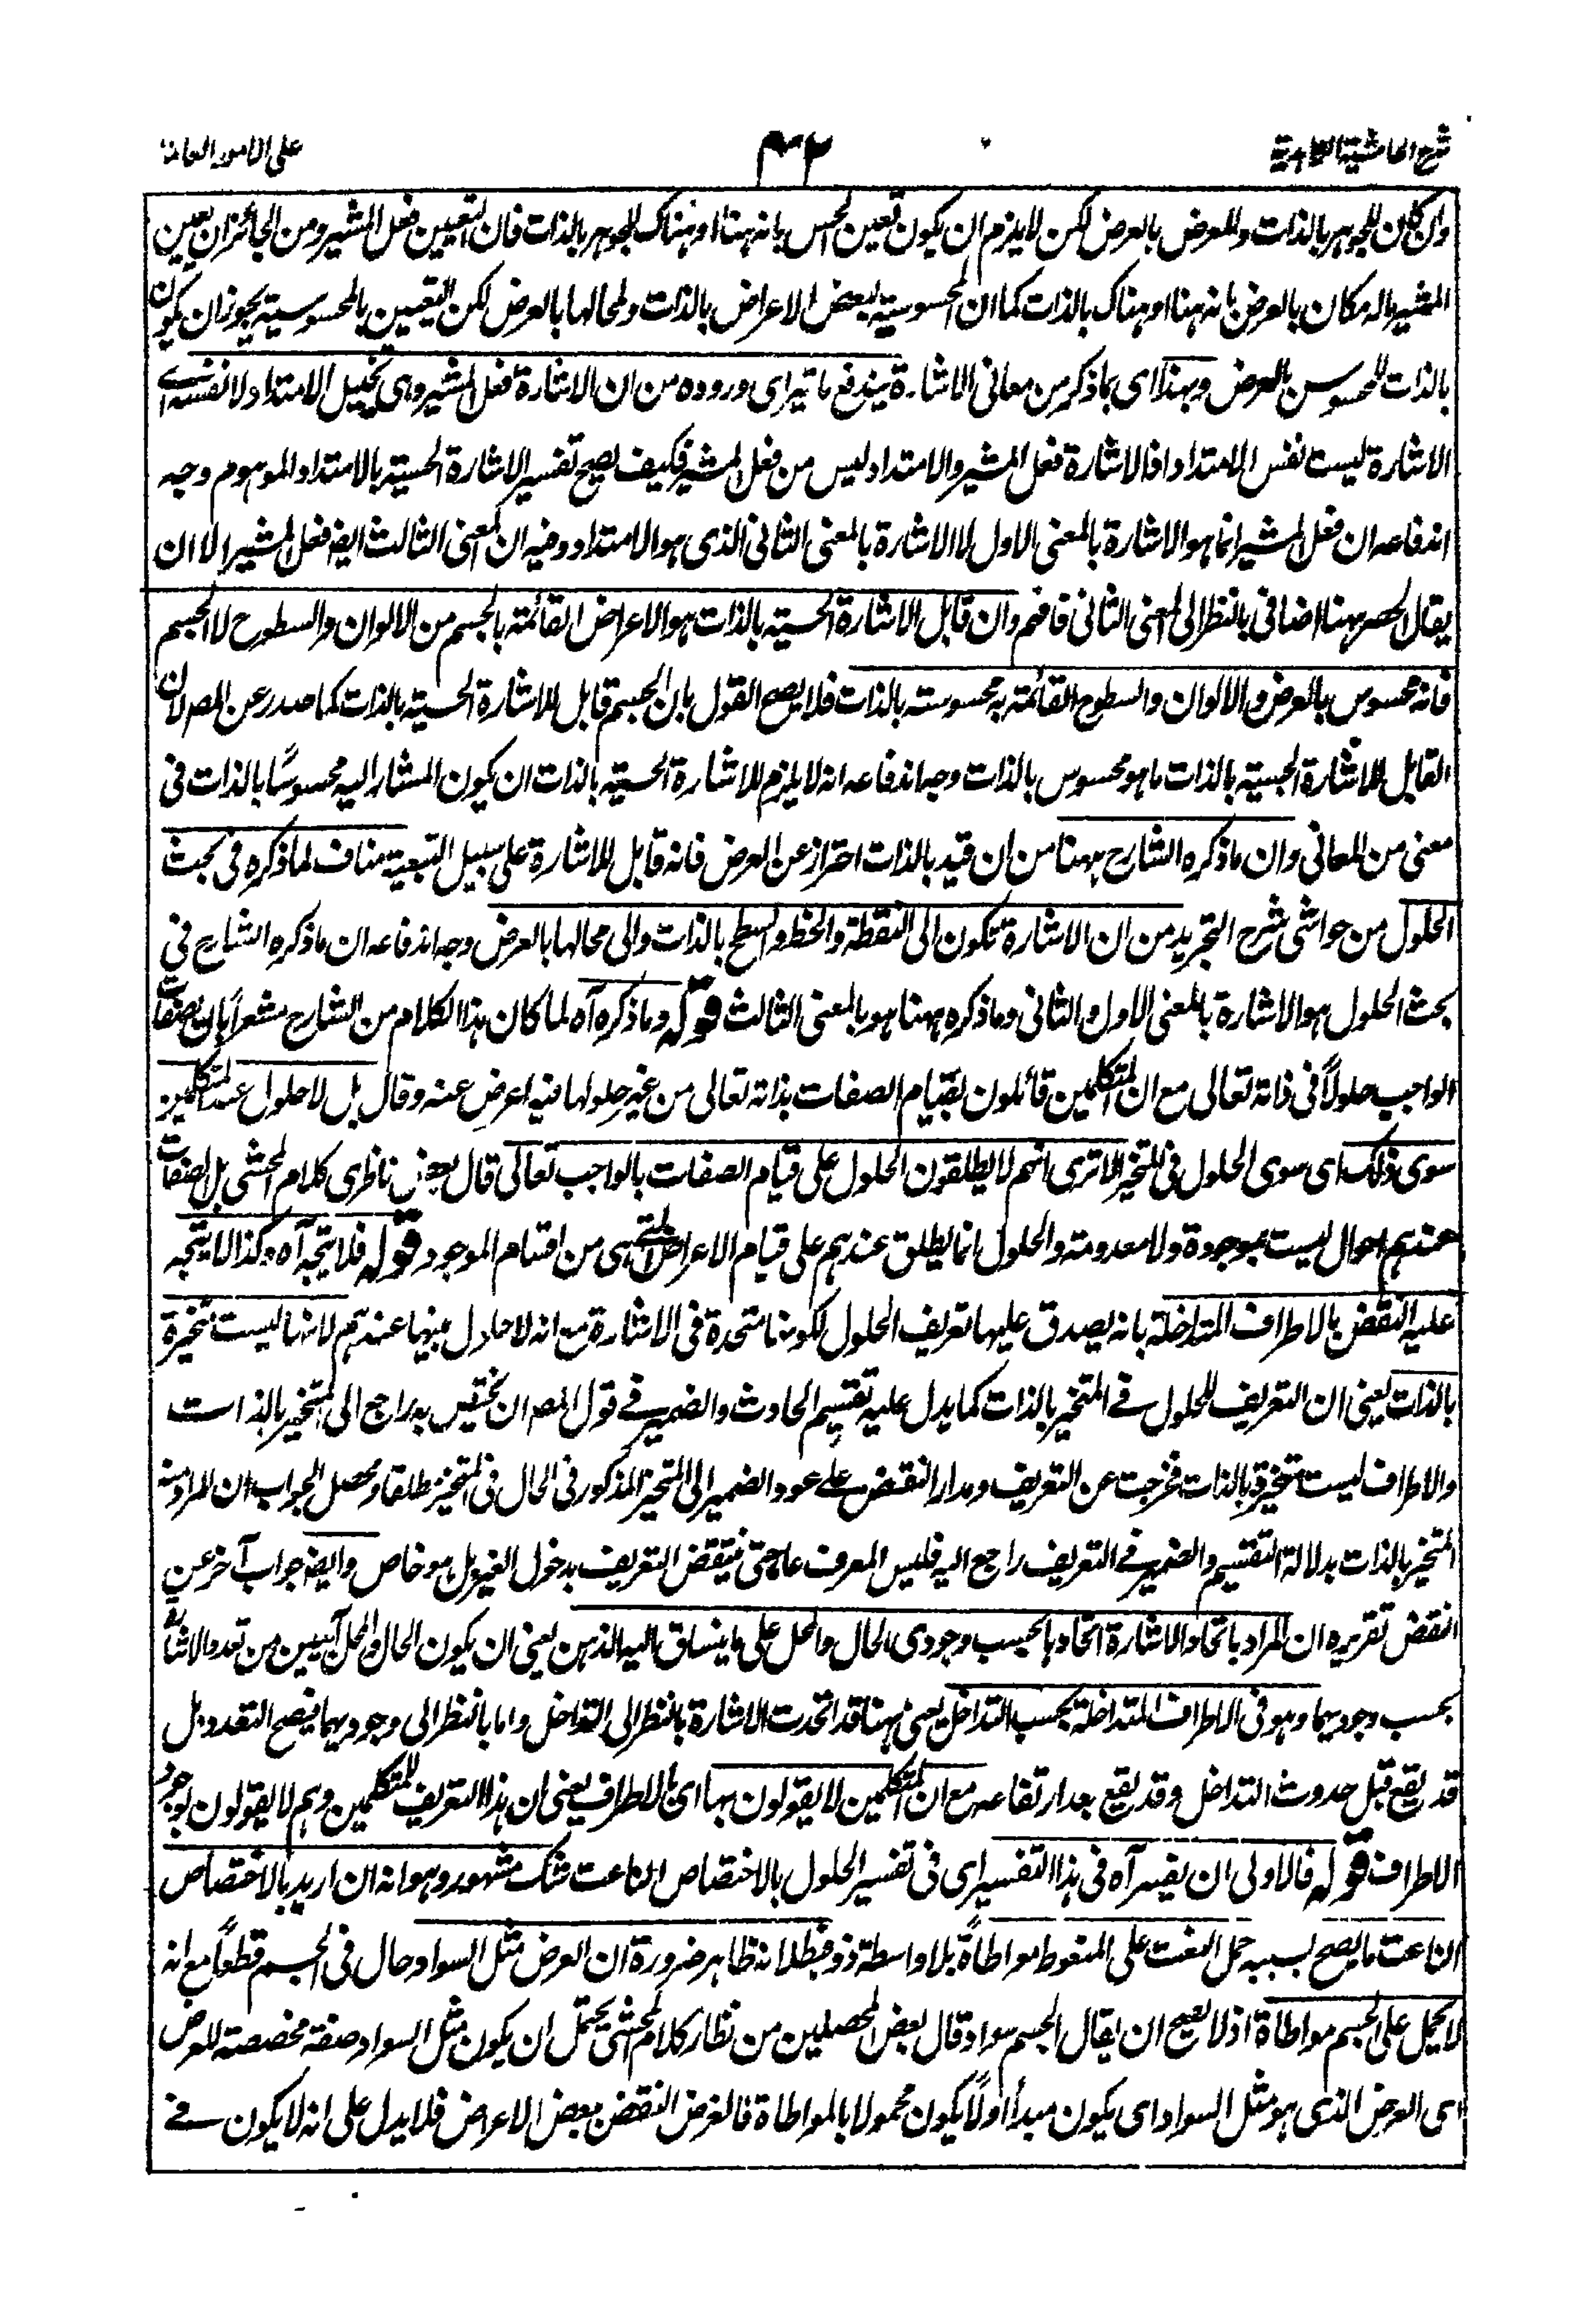 شرح الحاشية الزاهدية
٤٢
على الامور العامة
وان كان للجوهر بالذات وللعرض بالعرض لكن لا يلزم ان يكون تعين الحس بانه ههنا او هناك للجوهر بالذات فان التعيين فعل المشير ومن الجائز ان يعين
المشير ما له مكان بالعرض بانه ههنا او هناك بالذات كما ان المحسوسية لبعض الاعراض بالذات ولمحالها بالعرض لكن التعيين بالمحسوسية يجوز ان يكون
بالذات للمحسوس بالعرض وبهذا اى بما ذكر من معانى الاشارة يندفع ما تيراى وروده من ان الاشارة فعل المشير وهى تخييل الامتداد لا نفسه اى
الاشارة ليست نفس الامتداد اذ الاشارة فعل المشير والامتداد ليس من فعل المشير فكيف يصح تفسير الاشارة الحسية بالامتداد الموهوم وجه
اندفاعه ان فعل المشير انما هو الاشارة بالمعنى الاول لا الاشارة بالمعنى الثانى الذى هو الامتداد وفيه ان المعنى الثالث ايضا فعل المشير الا ان
يقال الحصر ههنا اضافى بالنظر الى المعنى الثانى فافهم وان قابل الاشارة الحسية بالذات هو الاعراض القائمة بالجسم من الالوان والسطوح لا الجسم
فانه محسوس بالعرض والالوان والسطوح القائمة به محسوسة بالذات فلا يصح القول بان الجسم قابل للاشارة الحسية بالذات كما صدر عن المصـ لان
القابل للاشارة الحسية بالذات ما هو محسوس بالذات وجه اندفاعه انه لا يلزم للاشارة الحسية بالذات ان يكون المشار اليه محسوسًا بالذات فى
معنى من المعانى وان ما ذكره الشارح ههنا من ان قيد بالذات احتراز عن العرض فانه قابل للاشارة على سبيل التبعية مناف لما ذكره فى بحث
الحلول من حواشى شرح التجريد من ان الاشارة تكون الى النقطة والخط والسطح بالذات والى محالها بالعرض وجه اندفاعه ان ما ذكره الشارح فى
بحث الحلول هو الاشارة بالمعنى الاول والثانى وما ذكره ههنا هو بالمعنى الثالث قوله وما ذكره آه لما كان هذا الكلام من الشارح مشعرًا بان لصفات
الواجب حلولًا فى ذاته تعالى مع ان المتكلمين قائلون بقيام الصفات بذاته تعالى من غير حلولها فيه اعرض عنه وقال بل لا حلول عند المتكلمين
سوى ذلك اى سوى الحلول فى المتحيز الا ترى انهم لا يطلقون الحلول على قيام الصفات بالواجب تعالى قال بعض ناظرى كلام المحشى بل الصفات
عندهم احوال ليست بموجودة ولا معدومة والحلول انما يطلق عندهم على قيام الاعراض التى هى من اقسام الموجود قوله فلا يتجه آه وكذا لا يتجه
عليه النقض بالاطراف المتداخلة بانه يصدق عليها تعريف الحلول لكونها متحدة فى الاشارة مع انه لا حلول بينها عندهم لانها ليست متحيزة
بالذات يعنى ان التعريف للحلول فى المتحيز بالذات كما يدل عليه تقسيم الحادث والضمير فى قول المصـ ان يختص به راجع الى المتحيز بالذات
والاطراف ليست متحيزة بالذات فخرجت عن التعريف ومدار النقض على عود الضمير الى المتحيز المذكور فى الحال فى المتحيز مطلقا ومحصل الجواب ان المراد منه
المتحيز بالذات بدلالة التقسيم والضمير فى التعريف راجع اليه فليس المعرف عاما حتى ينتقض التعريف بدخول الغير بل هو خاص وايضا جواب آخر عن
النقض تقريره ان المراد باتحاد الاشارة اتحادها بحسب وجودى الحال والمحل على ما ينساق اليه الذهن يعنى ان يكون الحال والمحل آبيين من تعدد الاشارة
بحسب وجوديهما وهو فى الاطراف المتداخلة بحسب التداخل يعنى ههنا قد اتحدت الاشارة بالنظر الى التداخل واما بالنظر الى وجوديهما فيصح التعدد بل
قد يقع قبل حدوث التداخل وقد يقع بعد ارتفاعه مع ان المتكلمين لا يقولون بها اى بالاطراف يعنى ان هذا التعريف للمتكلمين وهم لا يقولون بوجود
الاطراف قوله فالاولى ان يفسر آه فى هذا التفسير اى فى تفسير الحلول بالاختصاص الناعت شك مشهور وهو انه ان اريد بالاختصاص
الناعت ما يصح بسببه حمل النعت على المنعوت مواطاةً بلا واسطة ذو فبطلانه ظاهر ضرورة ان العرض مثل السواد حال فى الجسم قطعًا مع انه
لا يحمل على الجسم مواطاة اذ لا يصح ان يقال الجسم سواد قال بعض المحصلين من نظار كلام المحشى يحتمل ان يكون مثل السواد صفة مخصصة للعرض
اى العرض الذى هو مثل السواد اى يكون مبدأ اولًا يكون محمولا بالمواطاة فالغرض النقض ببعض الاعراض فلا يدل على انه لا يكون فى